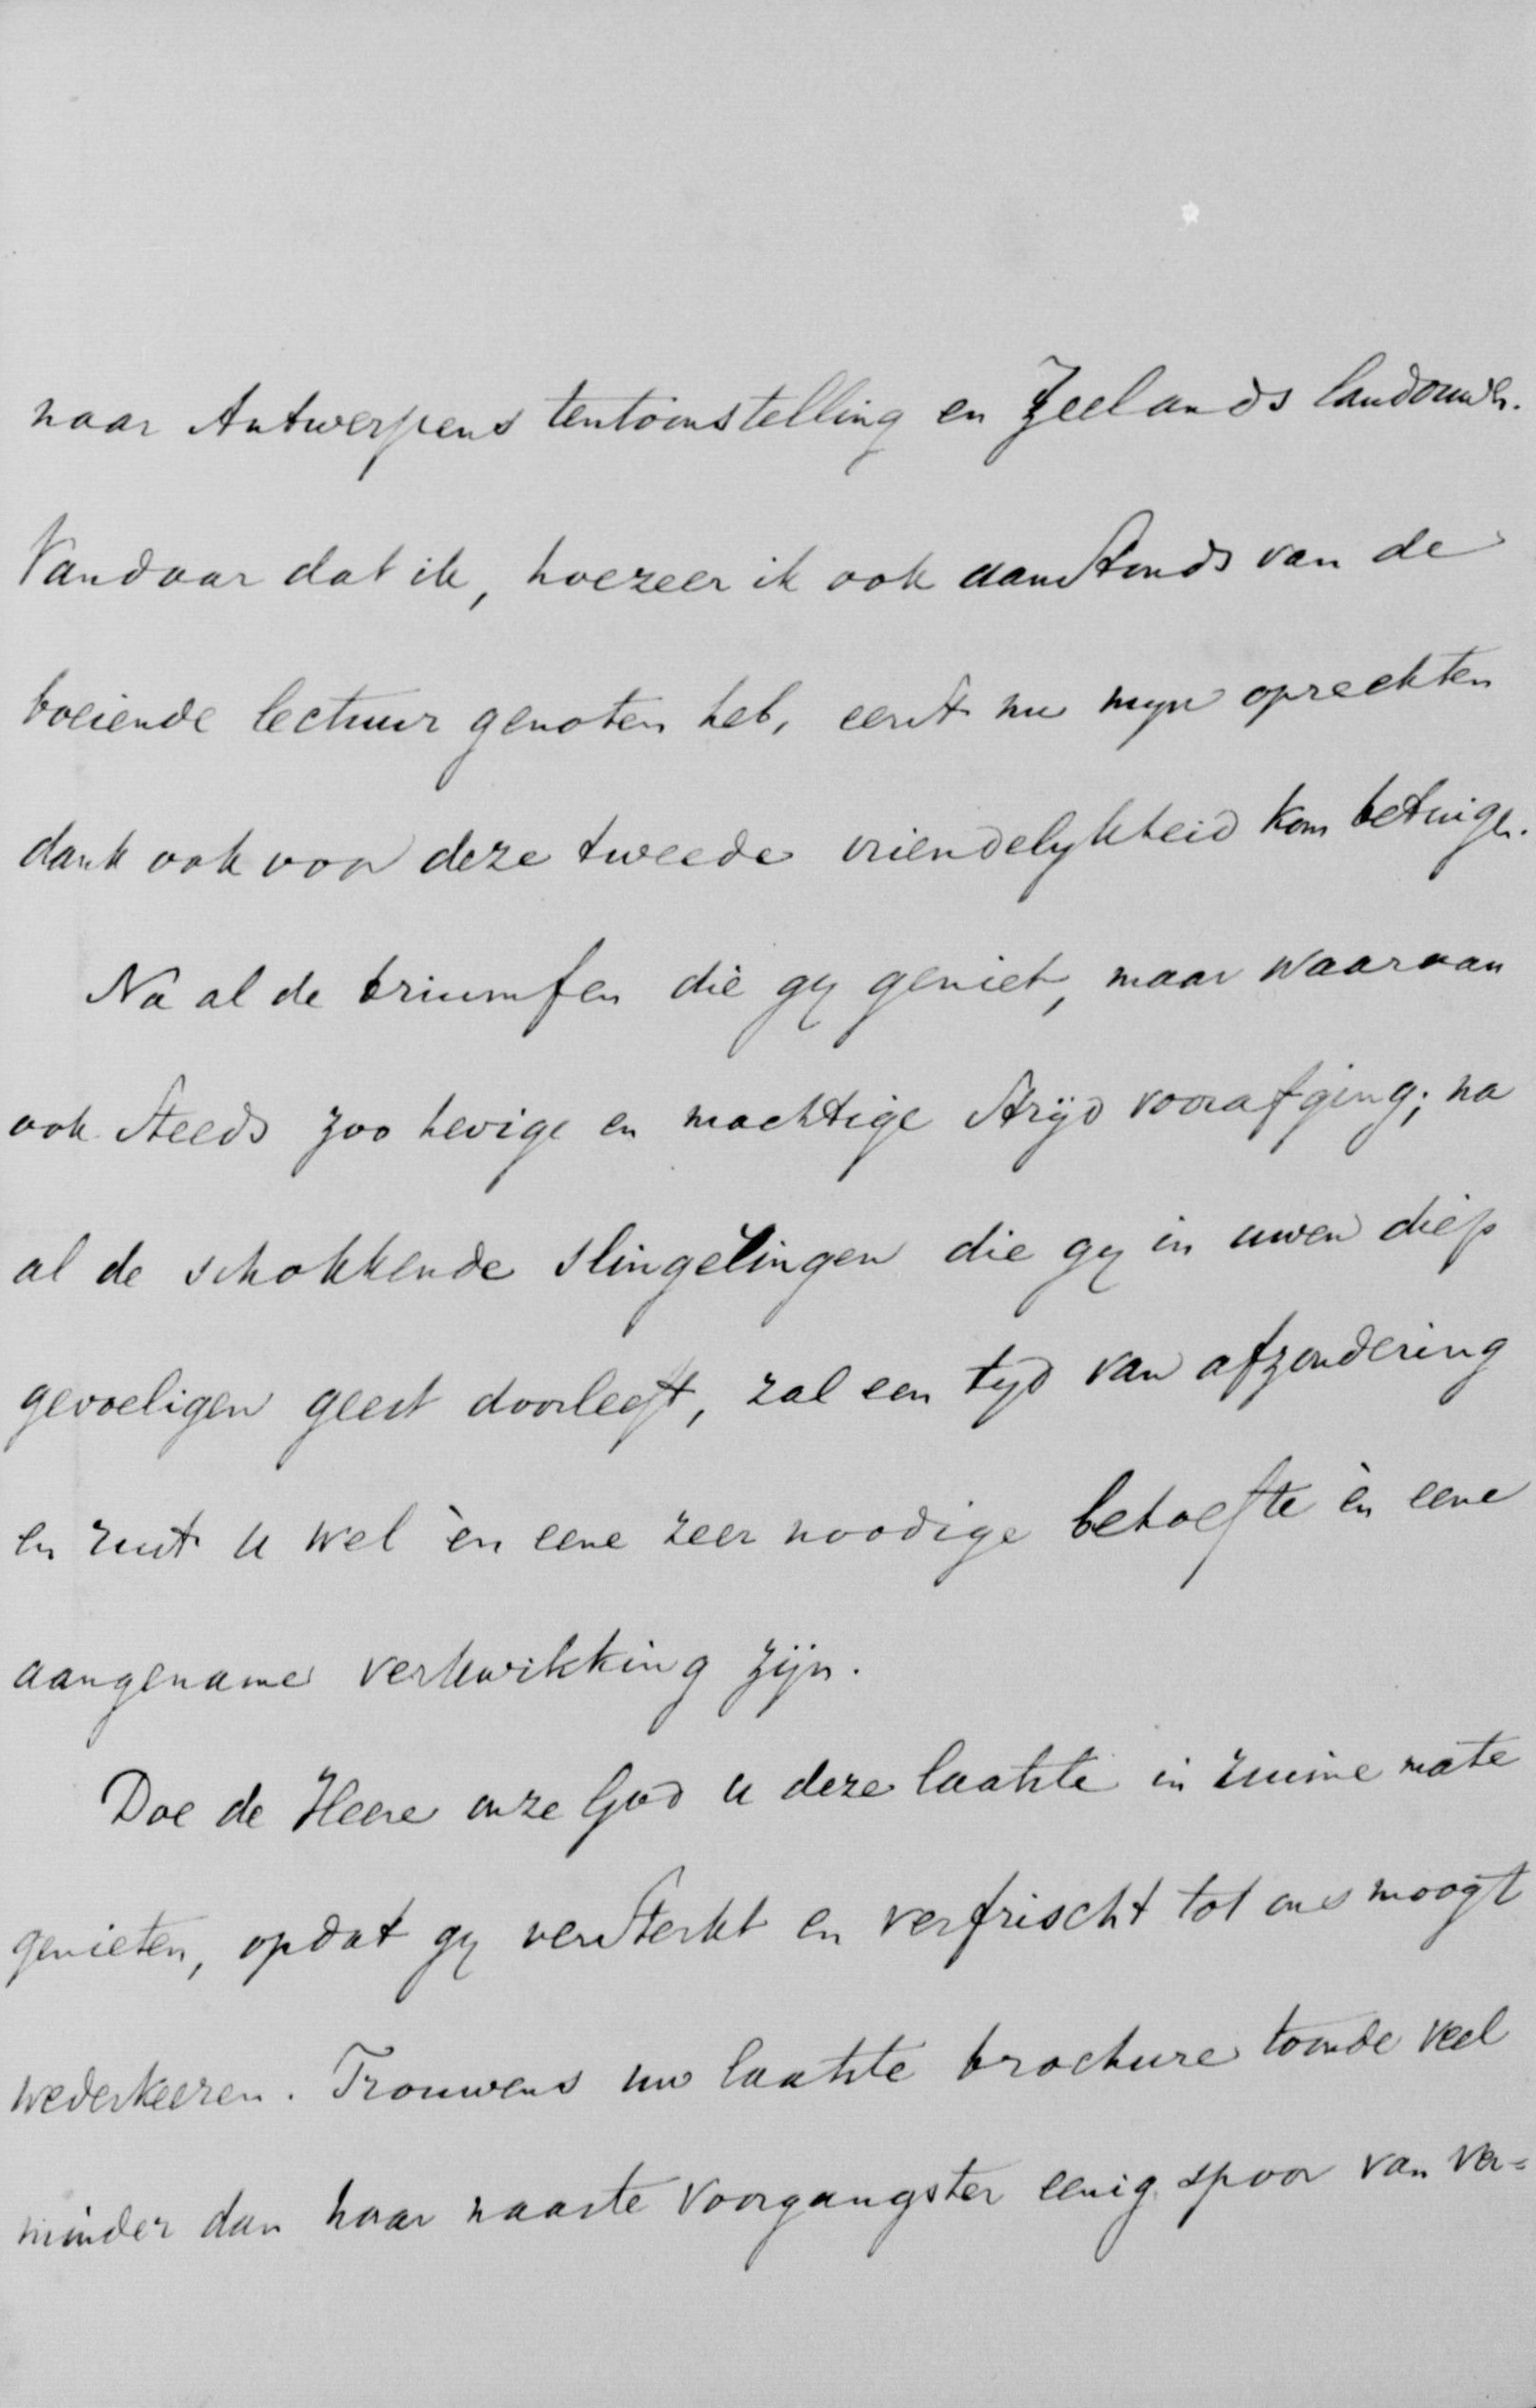 naar Antwerpens tentoonstelling en Zeelands landouwen.
Vandaar dat ik, hoezeer ik ook aanstonds van de
boeiende lectuur genoten heb, eerst nu myn oprechten
dank ook voor deze tweede vriendelykheid kom betuigen.
Na al de triumfen die gy geniet, maar waaraan
ook steeds zoo hevige en machtige stryd voorafging; na
al de schokkende slingelingen die gy in uwen diep
gevoeligen geest doorleeft, zal een tyd van afzondering
en rust u wel èn eene zeer noodige behoefte èn eene
aangename verkwikking zijn.
Doe de Heere onze God u deze laatste in ruime mate
genieten, opdat gy versterkt en verfrischt tot ons moogt
wederkeeren. Trouwens uw laatste brochure toonde veel
minder dan haar naaste voorgangster eenig spoor van ver=